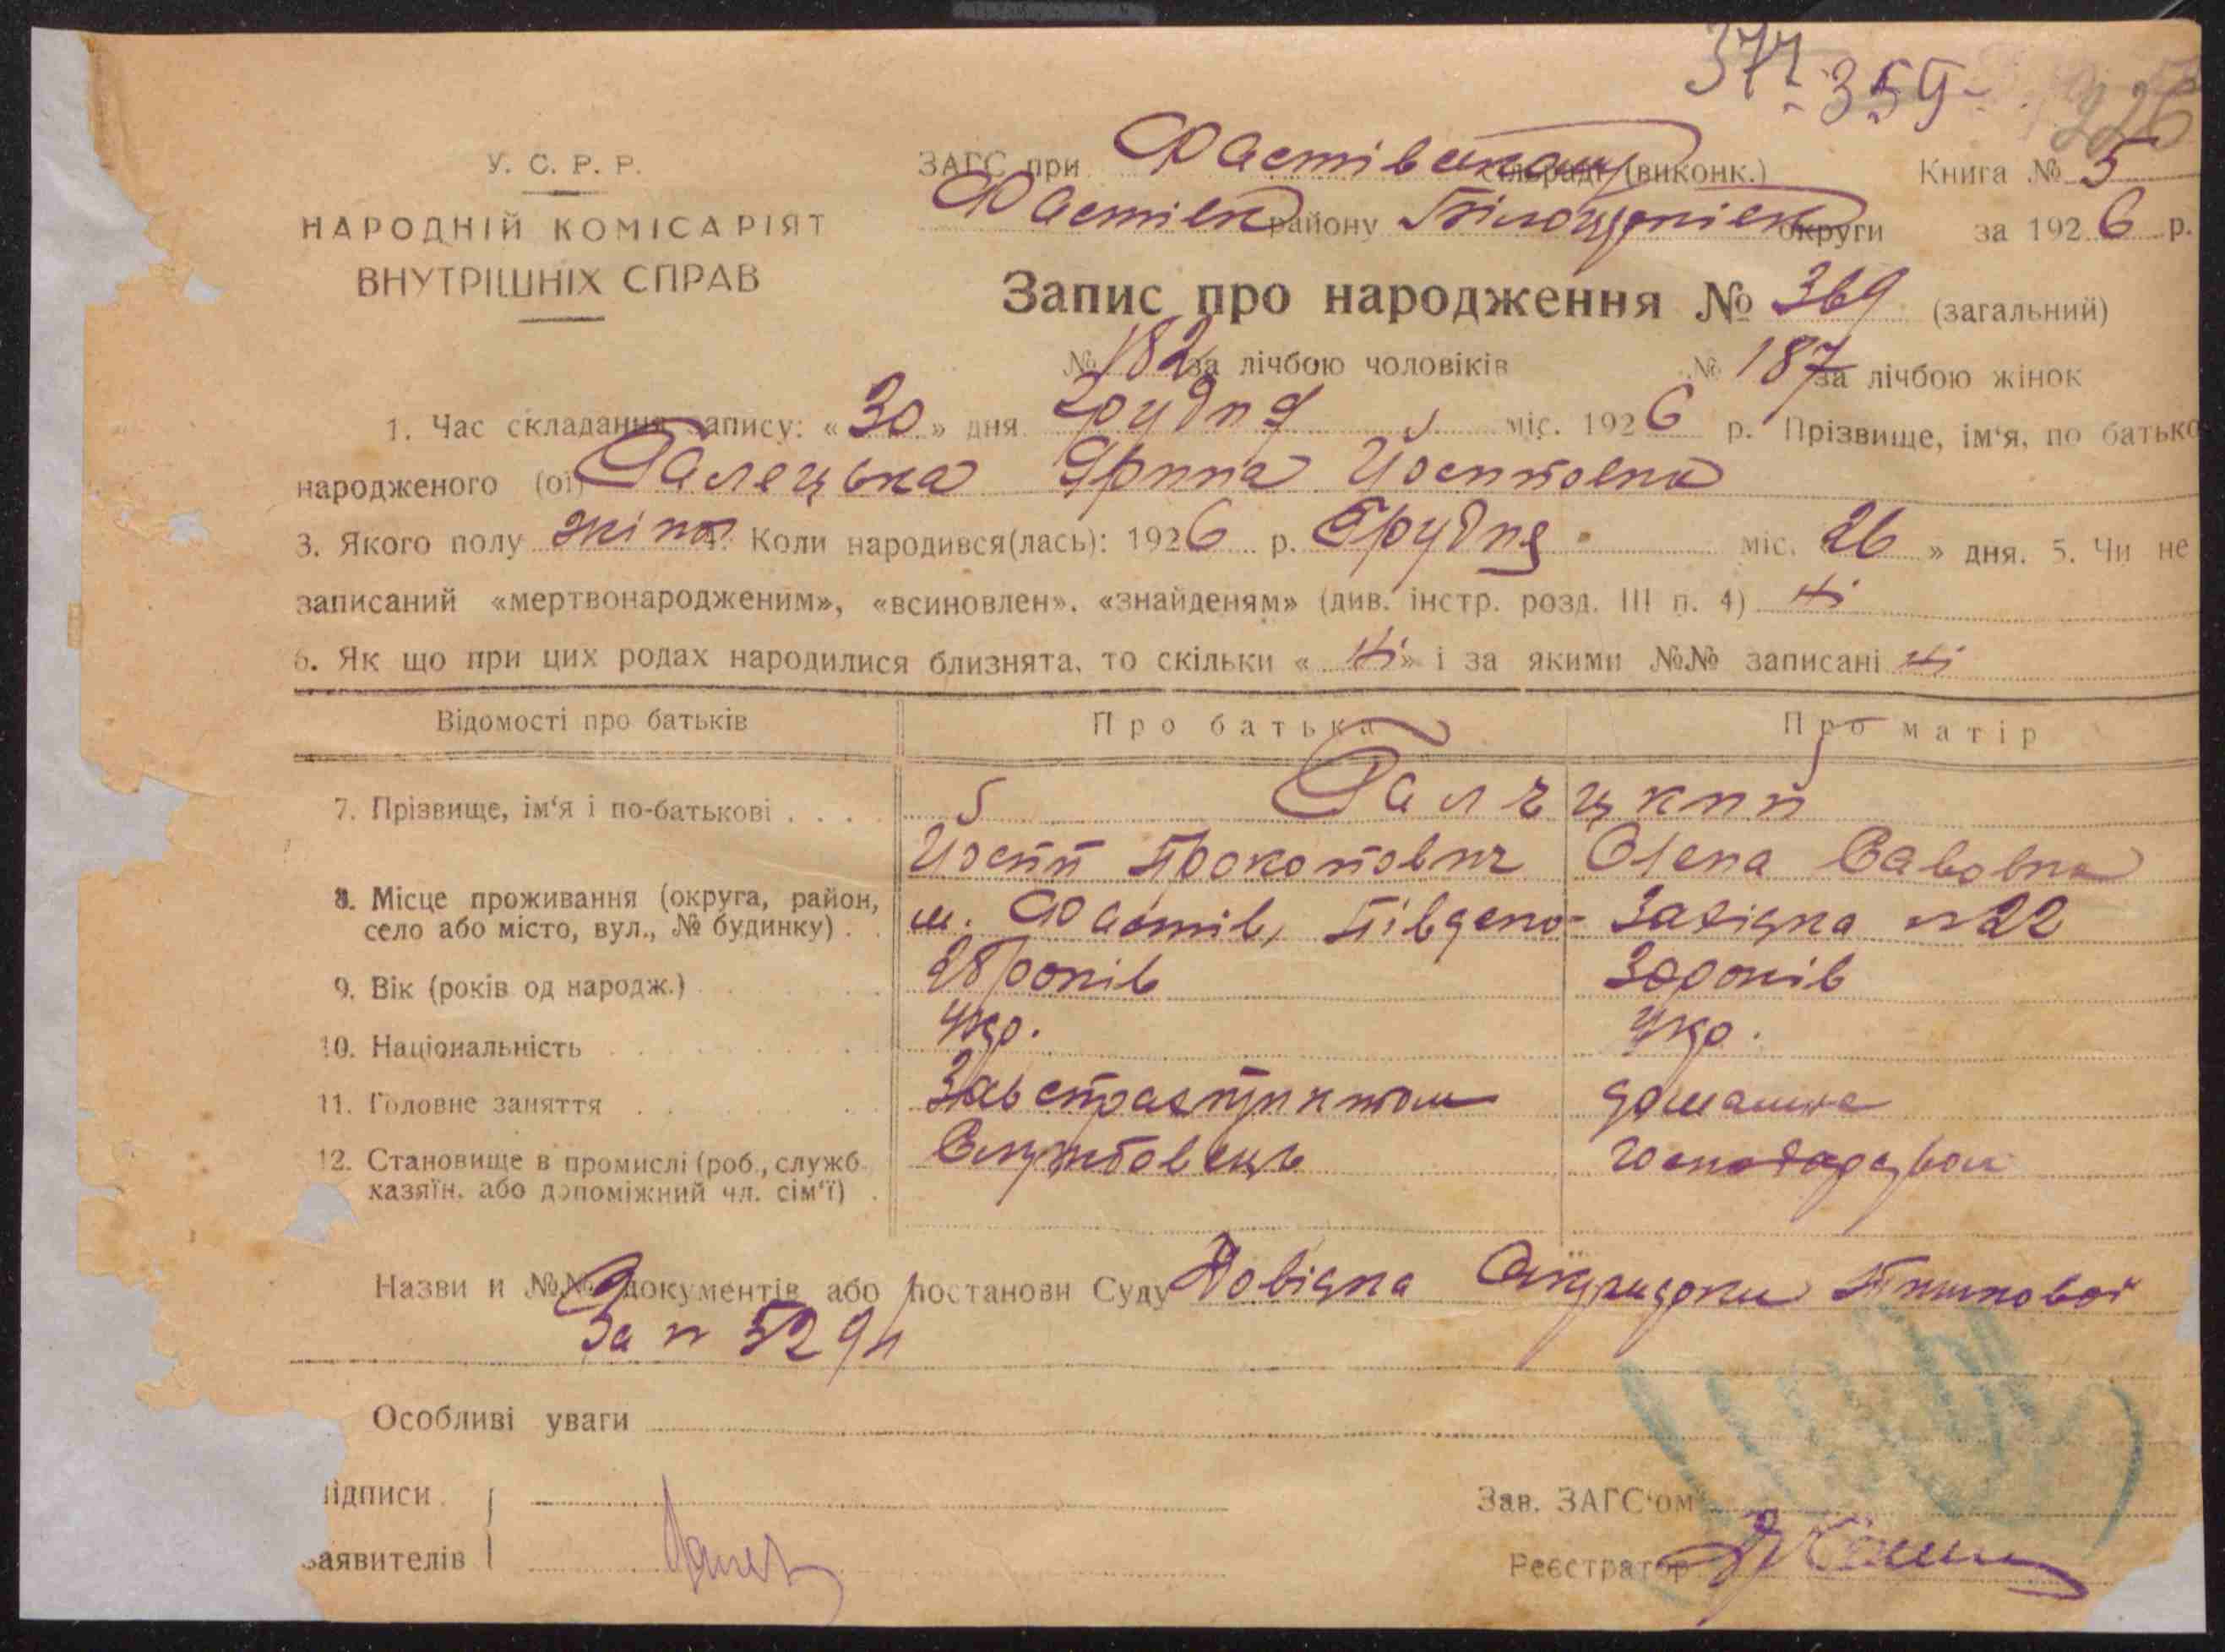 377 - 359 -
226
У. С. Р. Р.
НАРОДНІЙ КОМІСАРІЯТ
ВНУТРІШНІХ СПРАВ
ЗАГС при Фастівському сільраді (виконк.) Книга № 5
Фастівск району Білоцерківск округи за 1926 р.
Запис про народження № 369 (загальний)
№ 182 за лічбою чоловіків № 187 за лічбою жінок
1. Час складання запису: «30» дня грудня міс. 1926 р. Прізвище, ім'я, по батько
народженого (ої) Галецька Ярина Йосиповна
3. Якого полу жіноч 4. Коли народився(лась): 1926 р. Грудня міс. 26 » дня. 5. Чи не
записаний «мертвонародженим», «всиновлен», «знайденям» (див. інстр. розд. III п. 4) ні
6. Як що при цих родах народилися близнята, то скільки « ні » і за якими №№ записані ні
Відомості про батьків Про батька Про матір
7. Прізвище, ім'я і по-батькові . . . . Галецкии
Йосип Прокопович Олена Савовна
8. Місце проживання (округа, район,
село або місто, вул., № будинку) . . м. Фастів, Південо-Західна № 22
9. Вік (років од народж.) 28 років 30 років
10. Національність Укр. Укр.
11. Головне заняття Зав страхпунктом домашне
12. Становище в промислі (роб., служб.
хазяїн. або допоміжний чл. сім'ї) . Службовець господарство
Назви и №№ документів або постанови Суду Довідка
За № 5294
Особливі уваги
ідписи
аявителів
Зав. ЗАГС'ом
Реєстратор